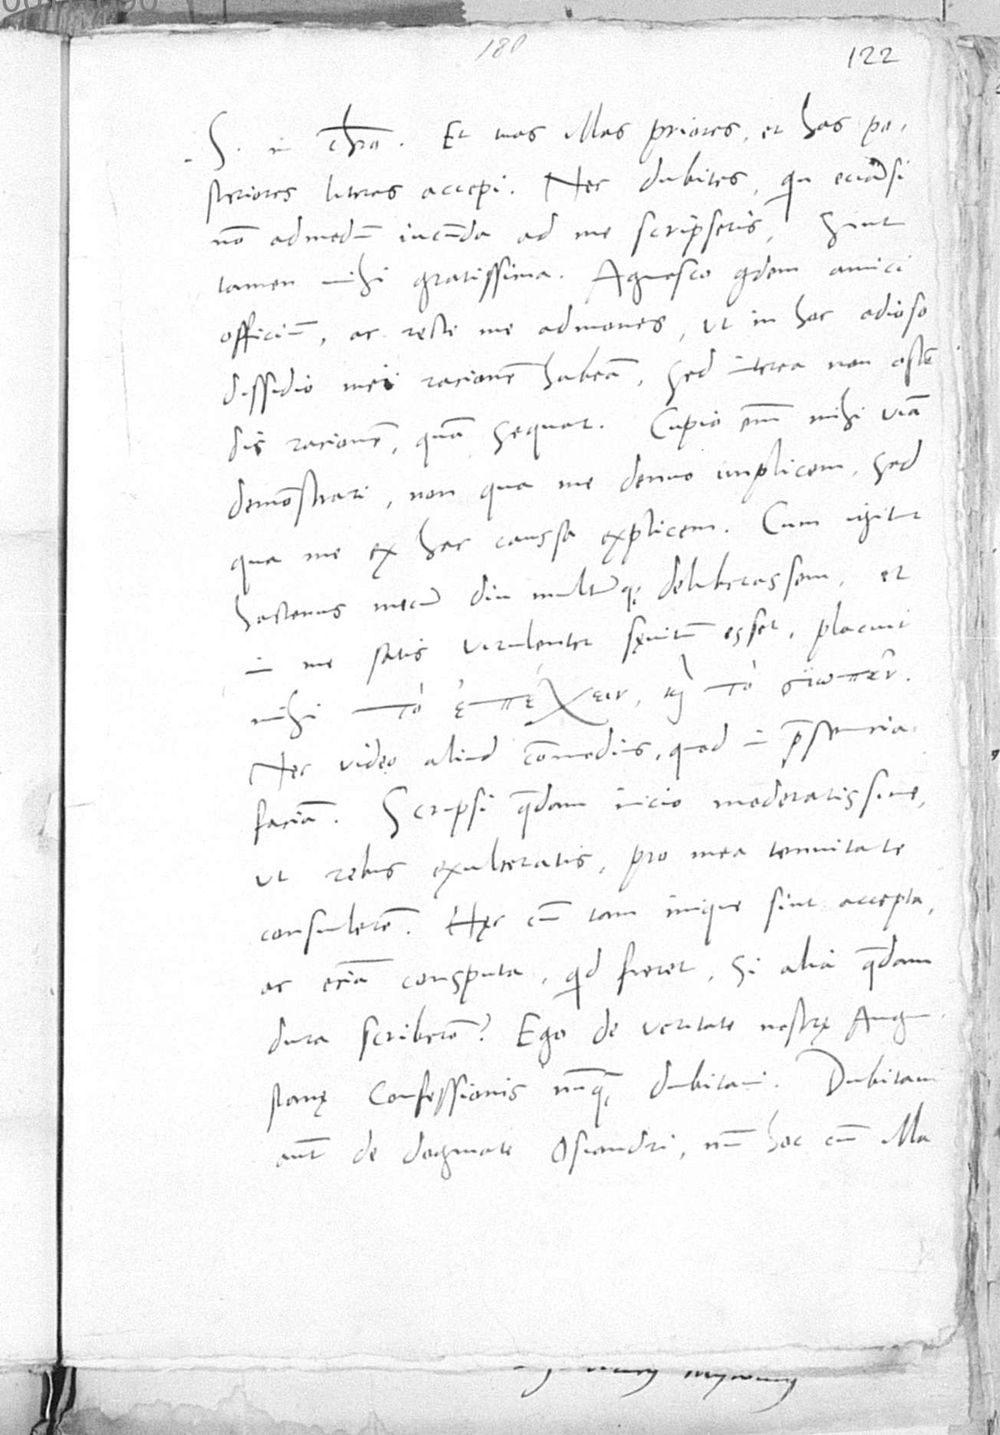 180
122
S. in chro. Et tuas illas priores, et has po,
steriores literas accepi. Nec dubites, qn eciãsi
nõ admodũ iucũda ad me scripseris, sint
tamen mihi gratissima. Agnosco qdem amici
officiũ, ac recte me admones, ut in hoc odioso
dissidio mei racionẽ habeã, sed interea non ostẽ
dis racionẽ, quã sequar. Cupio em̃ mihi viã
demõstrari, non qua me denuo implicem, sed
qua me ex hac caussa explicem. Cum igitur
hactenus mecũ diu multũq; deliberassem, et
in me satis virulenter sęuitũ esset, placuit
mihi τὸ ἐπέχειν, κὶ τὸ σιωπᾶν.
Nec video aliud cõmodius, quod in p̃sencia
faciã. Scripsi q̃dam inicio moderatissime,
ut rebus exulceratis, pro mea tenuitate
consulerẽ. Hęc cũ tam inique sint accepta,
ac eciã consputa, qd fieret, si alia q̃dam
dura scriberẽ? Ego de veritate nostrę Augu
stanę Confessionis nũq̃ dubitaui. Dubitaui
aũt de dogmate Osiandri, nũ hoc cũ illa